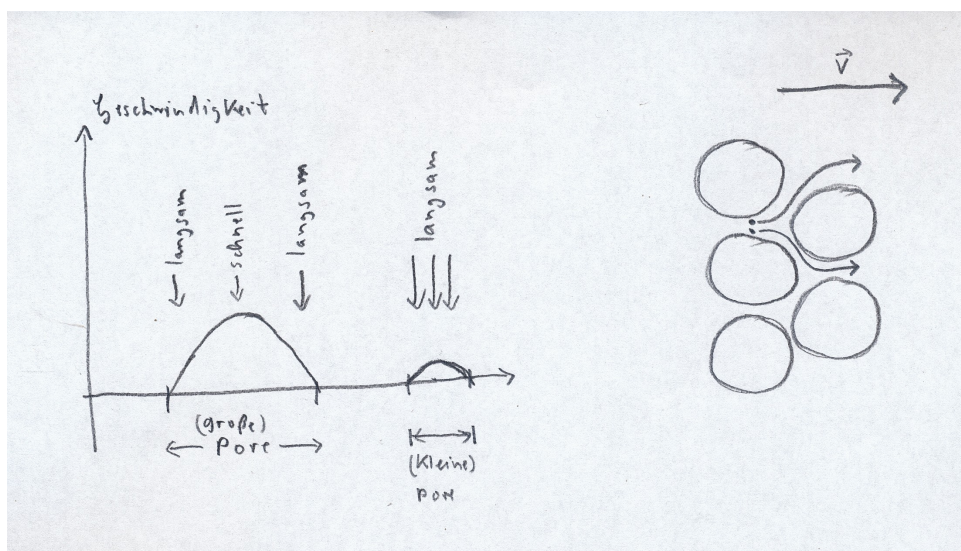 Geschwindigkeit
langsam
schnell
langsam
langsam
v
(große)
Pore
(Kleine)
Pore